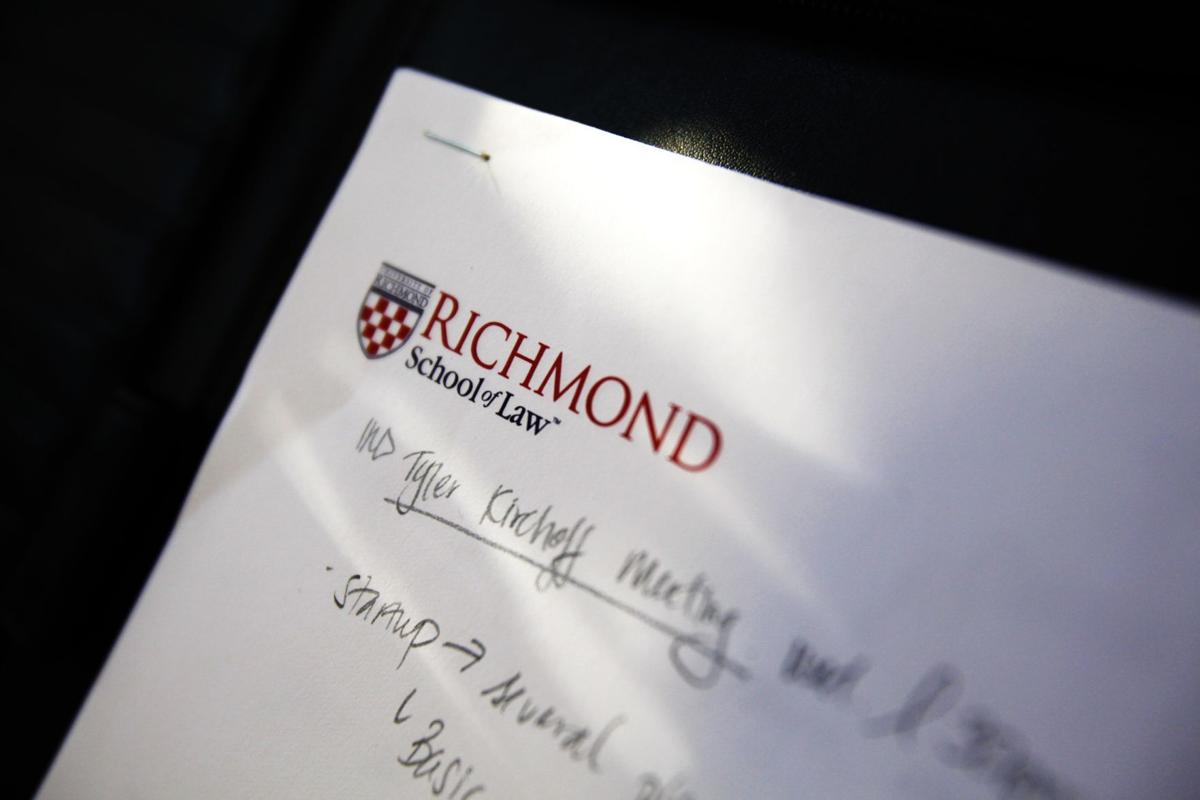 UNIVERSITY OF
RICHMOND
RICHMOND
School of Law™
Tyler Kirchoff Meeting
· Startup → several
↳ Basic